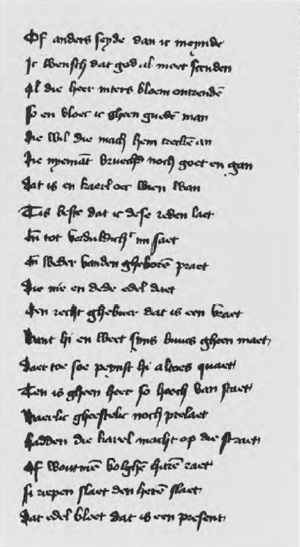 Of anders seyde dan ic meynde
Ic wensch dat god al moet scenden
Al die heer bloem
So en vloec ic gheen guedē man
Die wil die mach hem treckē an
Die nyemāt noch goet en gan
Dat is en kaerl oec wien wan
Tis beste dat ic dese reden laet
Eñ tot mi saet
Eñ weder vanden gheborē praet
Die nie en dede edel daet
Een recht ghebuer dat is een vraet
Want hi en weet syns buucs gheen maet
Daer toe soe peynst hi altoes quaet
Ten is gheen heer so hoech van staet
Waerlic gheestelic noch prelaet
Hadden die karel macht op die straet
Of woutmē volghē harē raet
Si riepen slaet den herē slaet
Dat edel bloet dat is een present